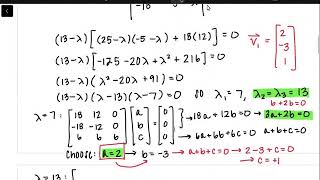 -18
(13-λ)[(25-λ)(-5-λ) + 18(12)] = 0
(13-λ)[-125 - 20λ + λ² + 216] = 0
(13-λ)(λ² - 20λ + 91) = 0
(13-λ)(λ-13)(λ-7) = 0 so λ₁ = 7, λ₂ = λ₃ = 13
V⃗₁ = [2 -3 1]
b + 2b = 0
λ = 7: [18 12 0 -18 -12 0 6 6 6] [a b c] = [0 0 0] → 18a + 12b = 0 → 3a + 2b = 0
→ 6a + 6b + 6c = 0 → a + b + c = 0
Choose: a = 2 → b = -3 → a + b + c = 0 → 2 - 3 + c = 0
→ c = +1
λ = 13: